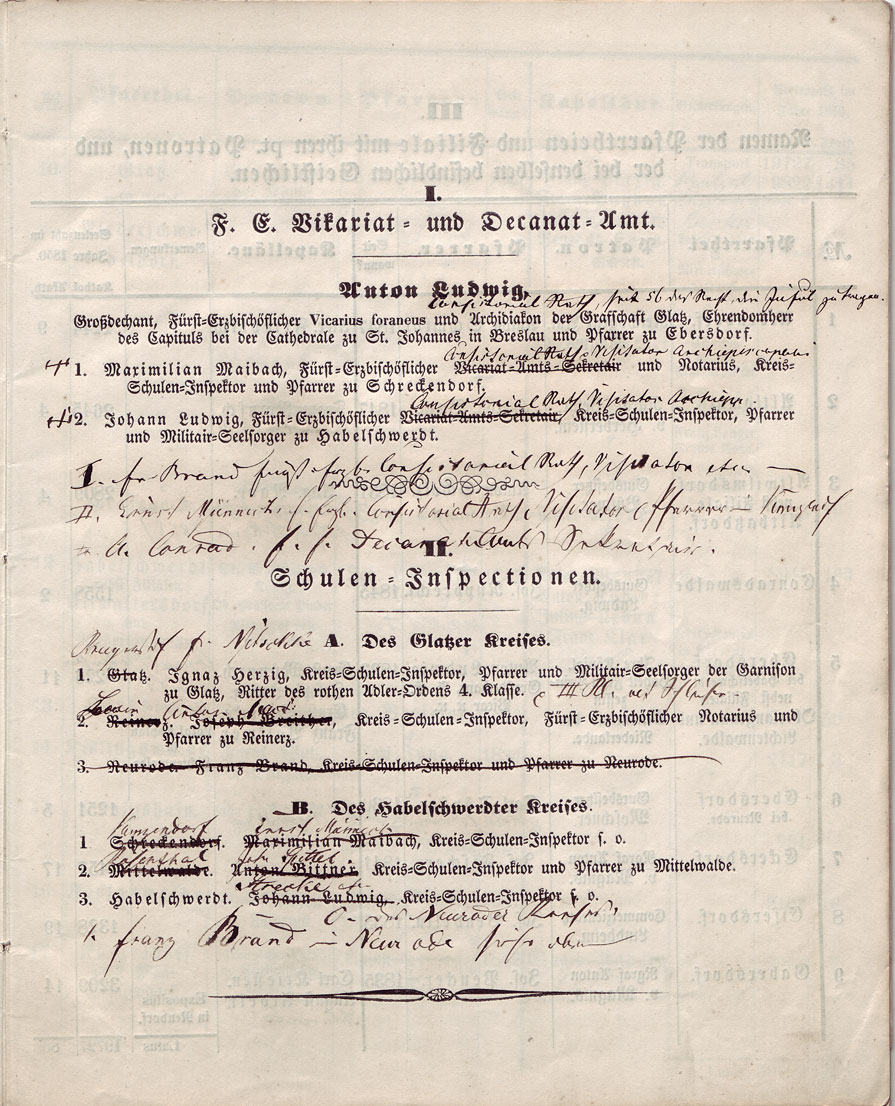 I.
F. E. Vikariat- und Decanat-Amt.
Anton Ludwig,
Consistorial Rath, seit 56 das Recht, die Inful zu tragen.
Großdechant, Fürst-Erzbischöflicher Vicarius foraneus und Archidiakon der Grafschaft Glatz, Ehrendomherr
des Capituls bei der Cathedrale zu St. Johannes in Breslau und Pfarrer zu Ebersdorf.
Consistorial Rath, Visitator Archiepiscopalis
1. Maximilian Maibach, Fürst-Erzbischöflicher Vicariat-Amts-Sekretair und Notarius, Kreis-
Schulen-Inspektor und Pfarrer zu Schreckendorf.
Consistorial Rath, Visitator Archiepp.
2. Johann Ludwig, Fürst-Erzbischöflicher Vicariat-Amts-Sekretair, Kreis-Schulen-Inspektor, Pfarrer
und Militair-Seelsorger zu Habelschwerdt.
I. fr. Brand Consistorial Rath, Visitator
II. Ernst Männich Consistorial Rath, Visitator, Pfarrer
A. Conrad. Decanat Amts Sekretair.
II.
Schulen-Inspectionen.
fr. Nitschke
A. Des Glatzer Kreises.
1. Glatz. Ignaz Herzig, Kreis-Schulen-Inspektor, Pfarrer und Militair-Seelsorger der Garnison
zu Glatz, Ritter des rothen Adler-Ordens 4. Klasse. III Kl. mit Schleife.
Lewin
2. Reinerz. Joseph Breither, Kreis-Schulen-Inspektor, Fürst-Erzbischöflicher Notarius und
Pfarrer zu Reinerz.
3. Neurode. Franz Brand, Kreis-Schulen-Inspektor und Pfarrer zu Neurode.
B. Des Habelschwerdter Kreises.
Kunzendorf Ernst Männich
1 Schreckendorf. Maximilian Maibach, Kreis-Schulen-Inspektor s. o.
Rosenthal Joh. Zittel
2. Mittelwalde. Anton Bittner Kreis-Schulen-Inspektor und Pfarrer zu Mittelwalde.
3. Habelschwerdt. Johann Ludwig, Kreis-Schulen-Inspektor s. o.
C. des Neuroder Kreises:
1. Franz Brand in Neurode siehe oben